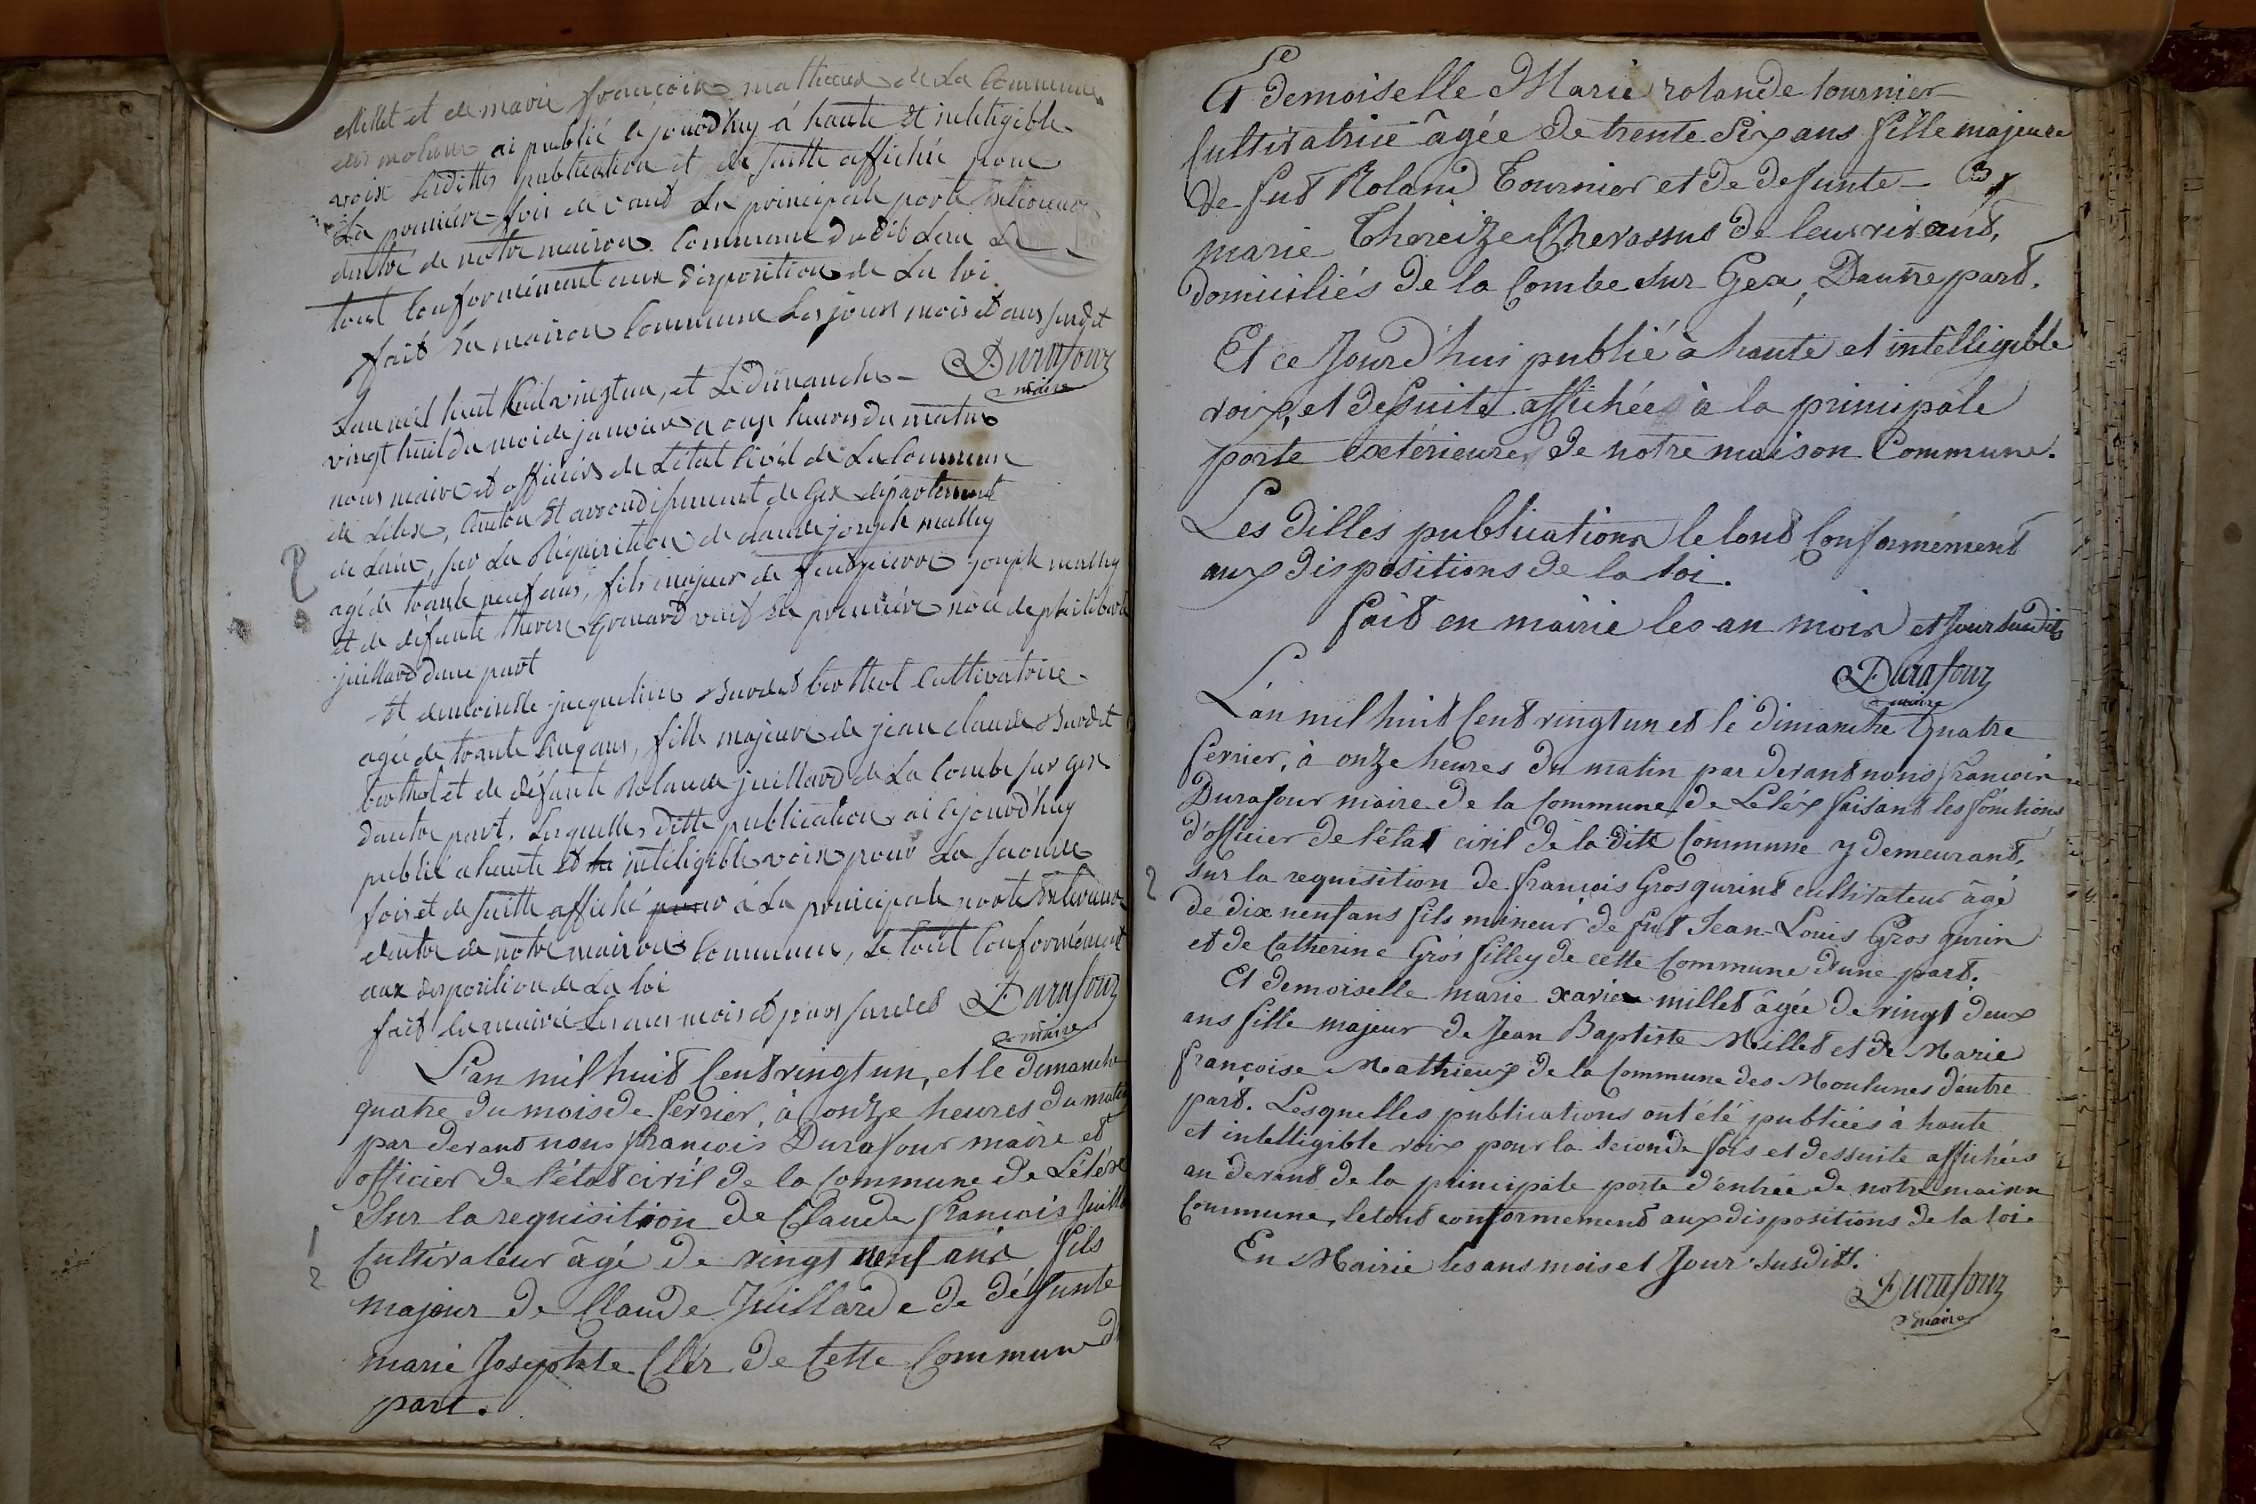 Millet et de marie françoise mathieux de La Commune
des molune ai publié cejourdhuy á haute et intetigible
voix Lesdittes publication et de suitte affichée pour
La premiére fois devant La principale porte
dentré de notre maison Commune dudit Lieu Le
tout Conformément aux disposition de La loi
fait En maison Commune Les jours mois et ans susdit
Durafour
maire
Lan mil huit Cent vingtun, et Le dimanche
vingt huit du moi de janvier a onze heures du matin
nous maire et officiers de Létat Civil de La Commune
de Lélex, Canton et arrondissement de Gex département
de Lain, sur La Réquisition de claude joseph mathey
agé de trante neuf ans, fils majeur de feut pierre joseph mathey
et de défunte therese Grenard veuf En premiére noce de philiberte
juillard dune part
Et demoiselle jacqueline burdet berthet Cultivatrice
agée de trante Cinq ans, fille majeure de jean claude burdet
berthet et de défunte Rolande juillard de La Combe sur Gex
dautre part. Lesquelles ditte publication ai cejourdhuy
publié a haute et intéligible voix pour La seconde
fois et de suitte affiché à La principale porte
dentré de notre maison Commune, Le tout Conformément
aux disposition de La loi
fait En mairie Les ans mois et jours susdit
Durafour
maire
L'an mil huit Cent vingt un, et le dimanche
quatre du mois de fevrier, à onze heures du matin
par devant nous François Durafour maire et
officier de l'état civil de la Commune de Léléx
Sur la requisition de Claude François Juillard
Cultivateur âgé de vingt neuf ans fils
majeur de Claude Juillard e de défunte
marie Josephte Cler de Cette Commune d
part.
2
1
2
Et demoiselle Marie rolande tournier
Cultivatrice âgée de trente Six ans fille majeure
de fut Roland Tournier et de defunte
marie Thereize Chevassus de leur vivant,
domiciliés de la Combe sur Gex, Dautre part.
Et ce Jourd'hui publié à haute et intelligible
voix, et dessuite affichées à la principale
porte extérieure de notre maison Commune.
Les dittes publications le tout Conformément
aux dispositions de la loi.
fait en mairie les an mois et Jour susdits
Durafour
maire
L'an mil huit Cent vingt un et le dimanche Quatre
fevrier, à onze heures du matin par devant nous François
Durafour maire de la Commune de Léléx faisant les fonctions
d'officier de l'état civil de la ditte Commune y demeurant,
2
Sur la requisition de François Grosgurint cultivateur âgé
de dix neuf ans fils mineur de fut Jean-Louis Gros gurin
et de Catherine Gros filley de cette Commune d'une part.
Et demoiselle marie xavier millet âgée de vingt deux
ans fille majeur de Jean Baptiste Millet et de Marie
françoise Mathieux de la Commune des Moulunes d'autre
part. Lesquelles publications ont été publiées à haute
et intelligible voix pour la Seconde fois et dessuite affichées
au devant de la principale porte d'entrée de notre maison
Commune, le tout conformement aux dispositions de la loi.
En Mairie les ans mois et Jour susdits.
Durafour
maire